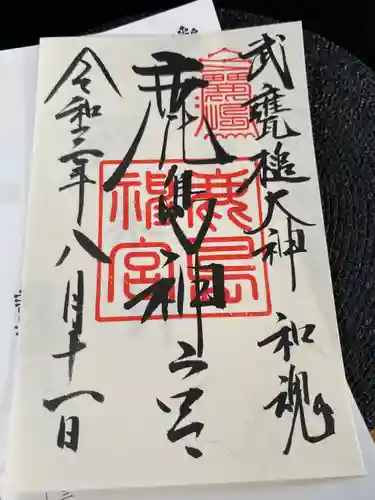 武甕槌大神 和魂
鹿島神宮
鹿島神宮
令和三年八月十一日